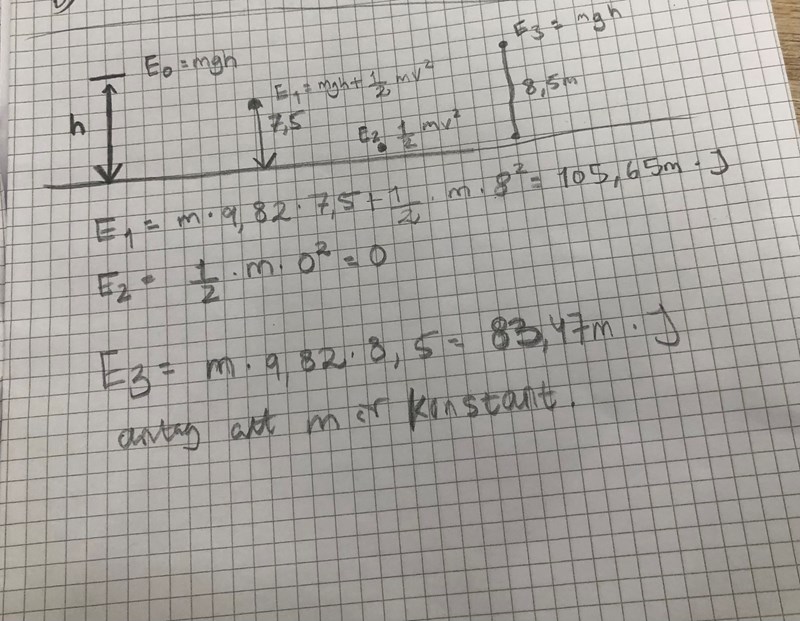 E₀ = mgh
E₃ = mgh
E₁ = mgh + 1/2 mv²
8,5m
h
7,5
E₂ 1/2 mv²
E₁ = m · 9,82 · 7,5 + 1/2 · m · 8² = 105,65m · J
E₂ = 1/2 · m · 0² = 0
E₃ = m · 9,82 · 8,5 = 83,47m · J
antag att m är konstant.